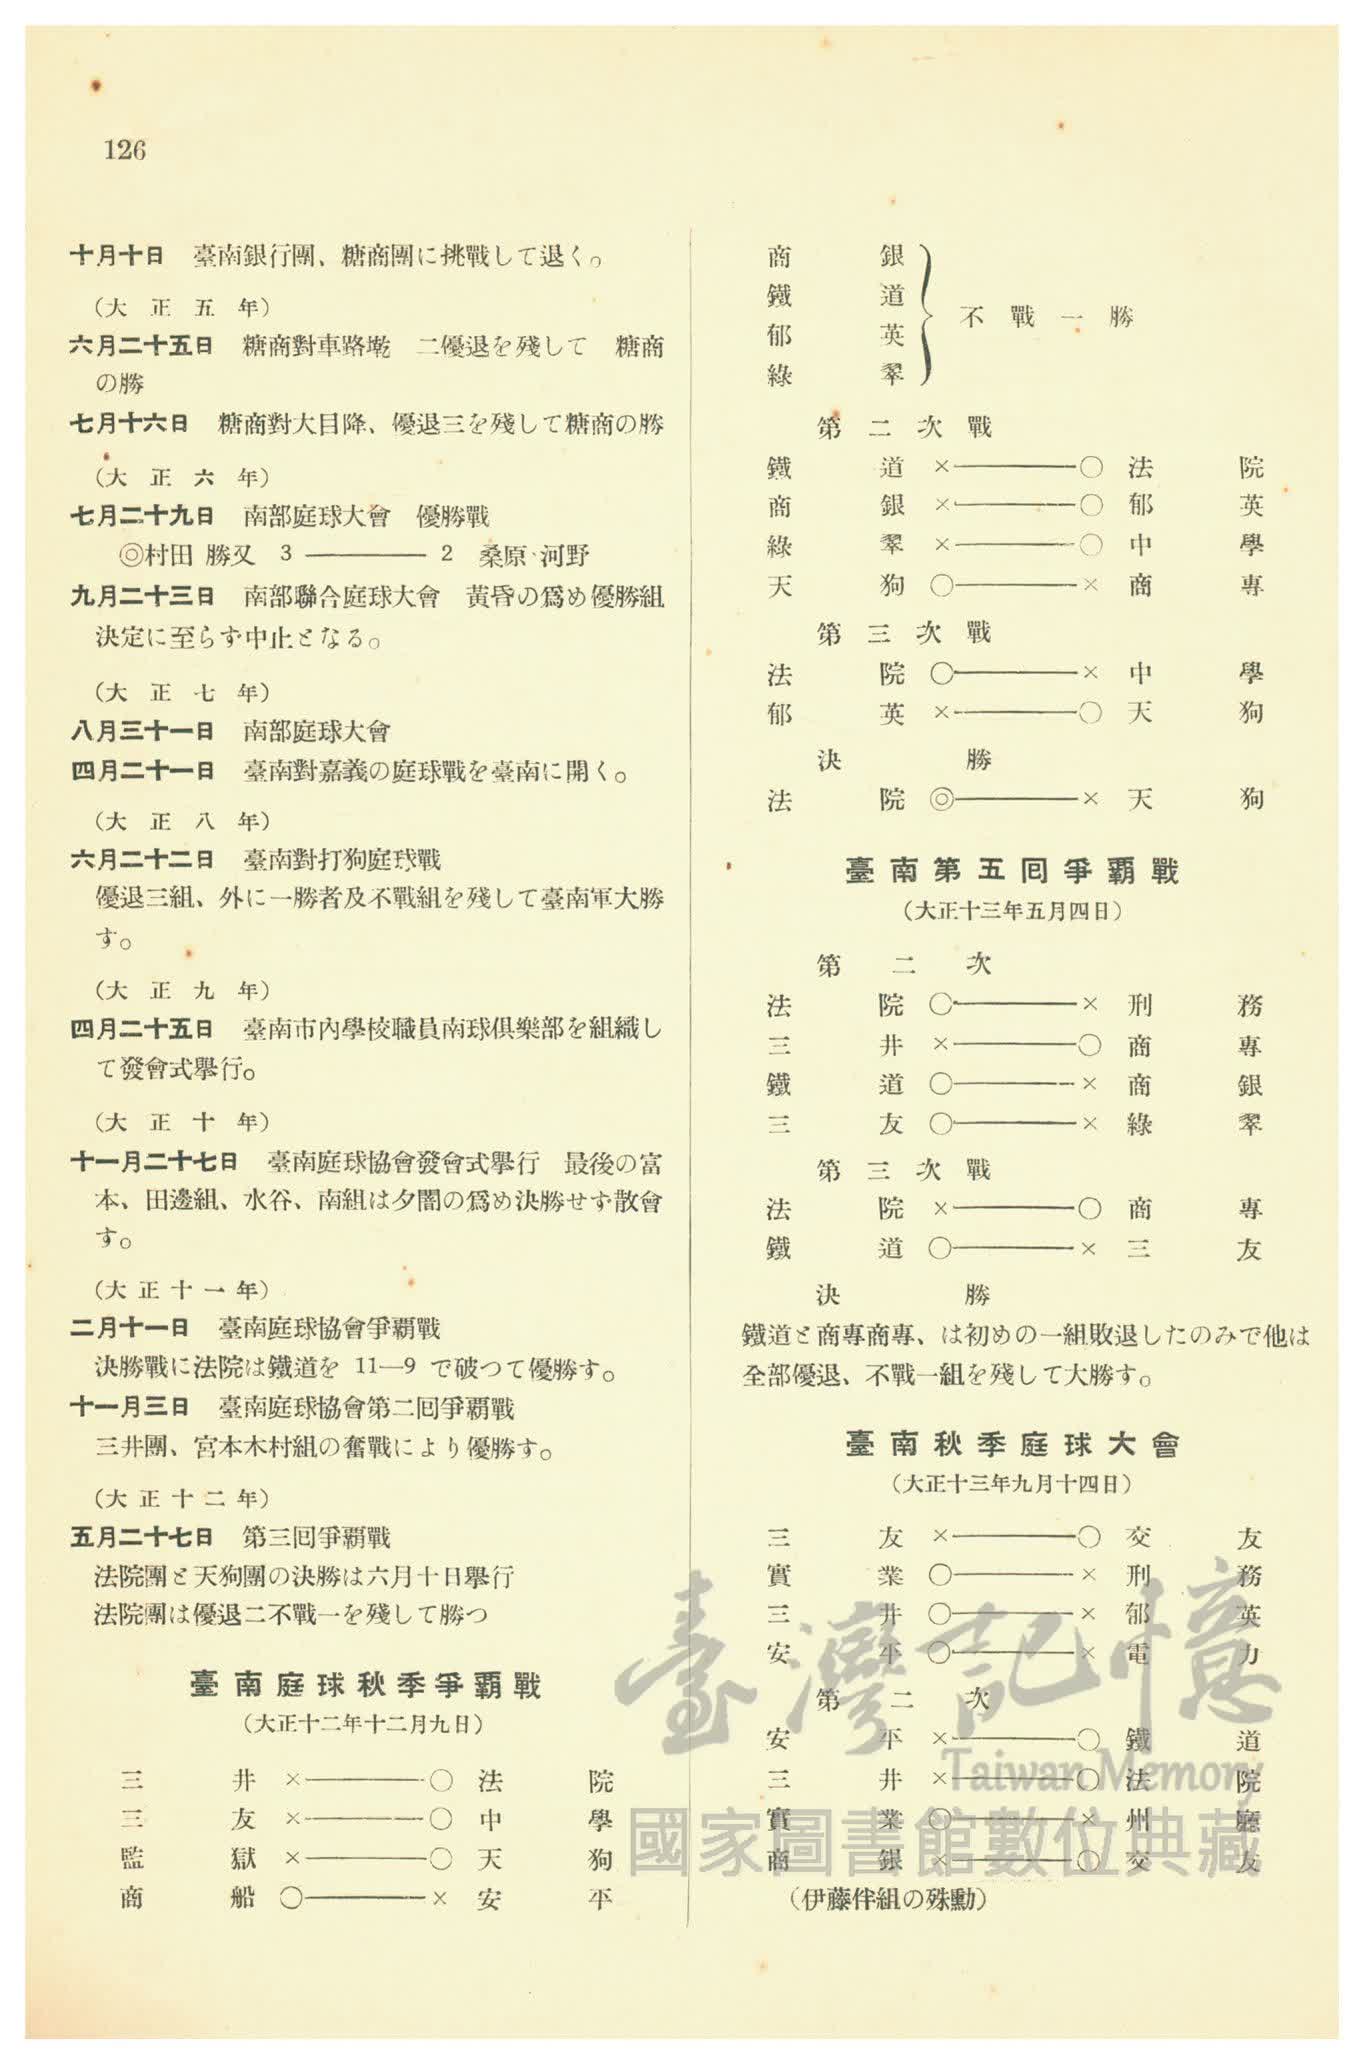 126
十月十日　臺南銀行團、糖商團に挑戰して退く。
（大正五年）
六月二十五日　糖商對車路墘　二優退を殘して　糖商
の勝
七月十六日　糖商對大目降、優退三を殘して糖商の勝
（大正六年）
七月二十九日　南部庭球大會　優勝戰
◎村田 勝又 3 ——— 2 桑原 河野
九月二十三日　南部聯合庭球大會　黄昏の爲め優勝組
決定に至らず中止となる。
（大正七年）
八月三十一日　南部庭球大會
四月二十一日　臺南對嘉義の庭球戰を臺南に開く。
（大正八年）
六月二十二日　臺南對打狗庭球戰
優退三組、外に一勝者及不戰組を殘して臺南軍大勝
す。
（大正九年）
四月二十五日　臺南市內學校職員南球倶樂部を組織し
て發會式擧行。
（大正十年）
十一月二十七日　臺南庭球協會發會式擧行　最後の富
本、田邊組、水谷、南組は夕闇の爲め決勝せず散會
す。
（大正十一年）
二月十一日　臺南庭球協會爭覇戰
決勝戰に法院は鐵道を 11—9 で破つて優勝す。
十一月三日　臺南庭球協會第二囘爭覇戰
三井團、宮本木村組の奮戰により優勝す。
（大正十二年）
五月二十七日　第三囘爭覇戰
法院團と天狗團の決勝は六月十日擧行
法院團は優退二不戰一を殘して勝つ
臺南庭球秋季爭覇戰
（大正十二年十二月九日）
三井 ×———○ 法院
三友 ×———○ 中學
監獄 ×———○ 天狗
商船 ○———× 安平
商銀
鐵道
郁英
綠翠
不戰一勝
第二次戰
鐵道 ×———○ 法院
商銀 ×———○ 郁英
綠翠 ×———○ 中學
天狗 ○———× 商專
第三次戰
法院 ○———× 中學
郁英 ×———○ 天狗
決勝
法院 ◎———× 天狗
臺南第五囘爭覇戰
（大正十三年五月四日）
第二次
法院 ○———× 刑務
三井 ×———○ 商專
鐵道 ○———× 商銀
三友 ○———× 綠翠
第三次戰
法院 ×———○ 商專
鐵道 ○———× 三友
決勝
鐵道と商專商專、は初めの一組敗退したのみで他は
全部優退、不戰一組を殘して大勝す。
臺南秋季庭球大會
（大正十三年九月十四日）
三友 ×———○ 交友
實業 ○———× 刑務
三井 ○———× 郁英
安平 ○———× 電力
第二次
安平 ×———○ 鐵道
三井 ×———○ 法院
實業 ○———× 州廳
商銀 ×———○ 交友
（伊藤伴組の殊勳）
臺灣記憶
Taiwan Memory
國家圖書館數位典藏